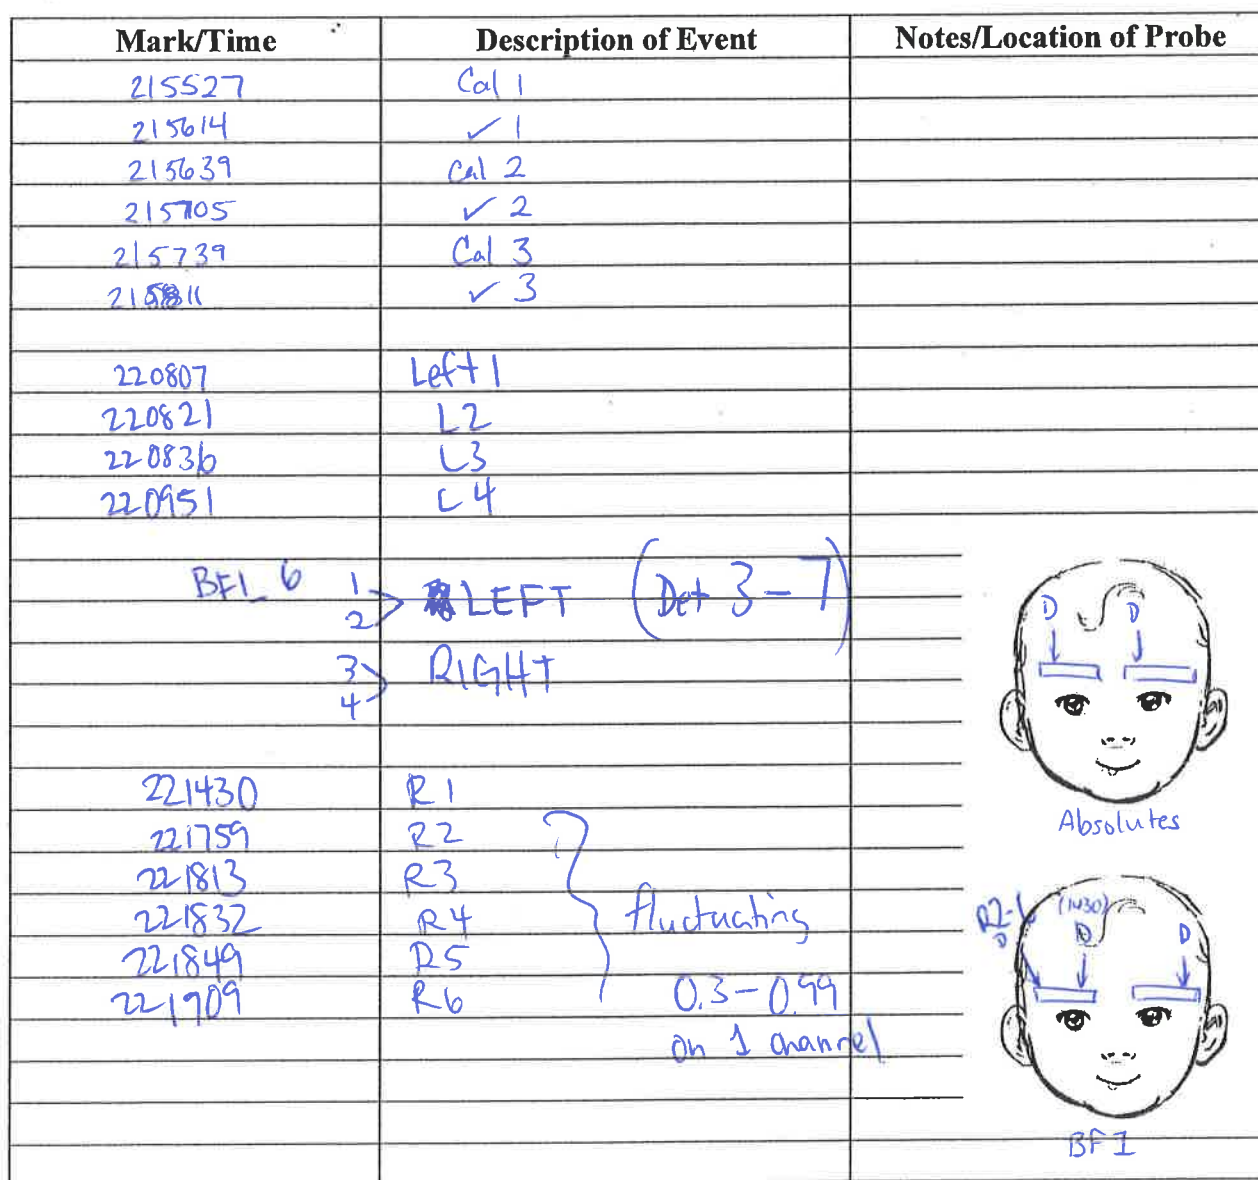 Mark/Time Description of Event Notes/Location of Probe
215527 Cal 1
215614 ✓ 1
215639 Cal 2
215705 ✓ 2
215739 Cal 3
215811 ✓ 3
220807 Left 1
220821 L2
220836 L3
220951 L4
BFI_6 1 2 LEFT (Det 3-7)
3 4 RIGHT
D D
Absolutes
221430 R1
221759 R2
221813 R3
221832 R4 fluctuating
221849 R5
221909 R6 0.3-0.99
on 1 channel
R2-6 (1430)
D D D
BFI